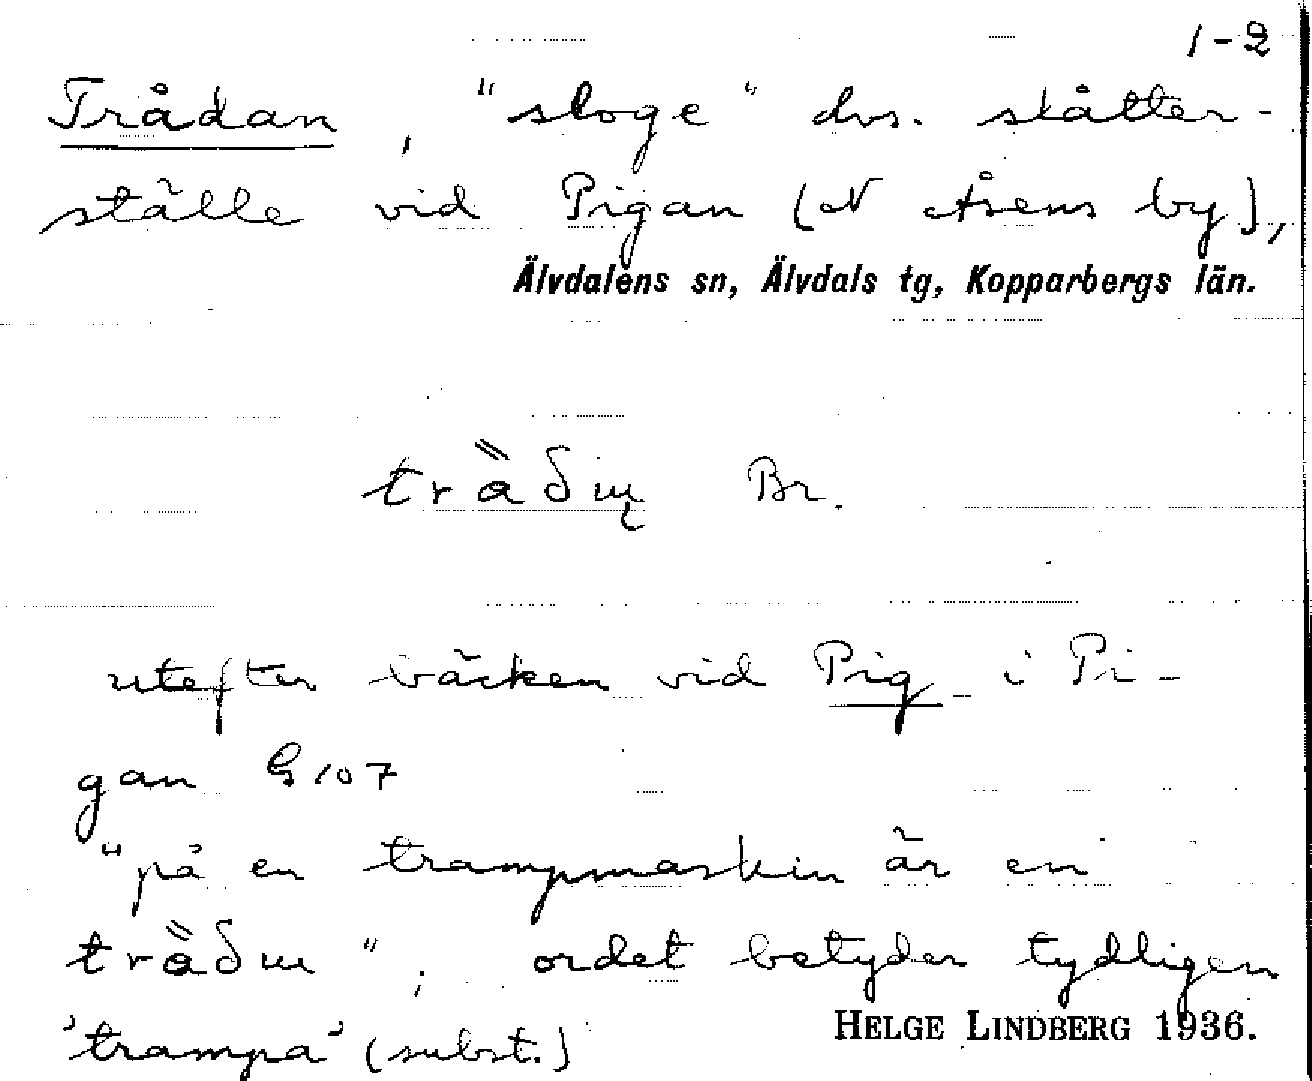 1-2
Trådan, "sloge" dvs. slåtter-
ställe vid Pigan (N Åsens by),
Älvdalens sn, Älvdals tg, Kopparbergs län.
Br.
utefter bäcken vid Pig- i Pi-
gan G 107
"på en trampmaskin är en
", ordet betyder tydligen
'trampa' (subst.)
HELGE LINDBERG 1936.